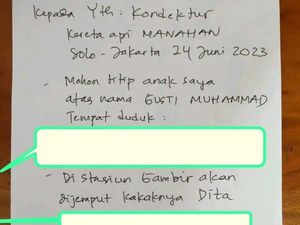 Kepada Yth: Kondektur
Kereta api MANAHAN
Solo - Jakarta 24 Juni 2023
- Mohon titip anak saya
atas nama GUSTI MUHAMMAD
Tempat duduk :
- Di Stasiun Gambir akan
dijemput kakaknya Dita